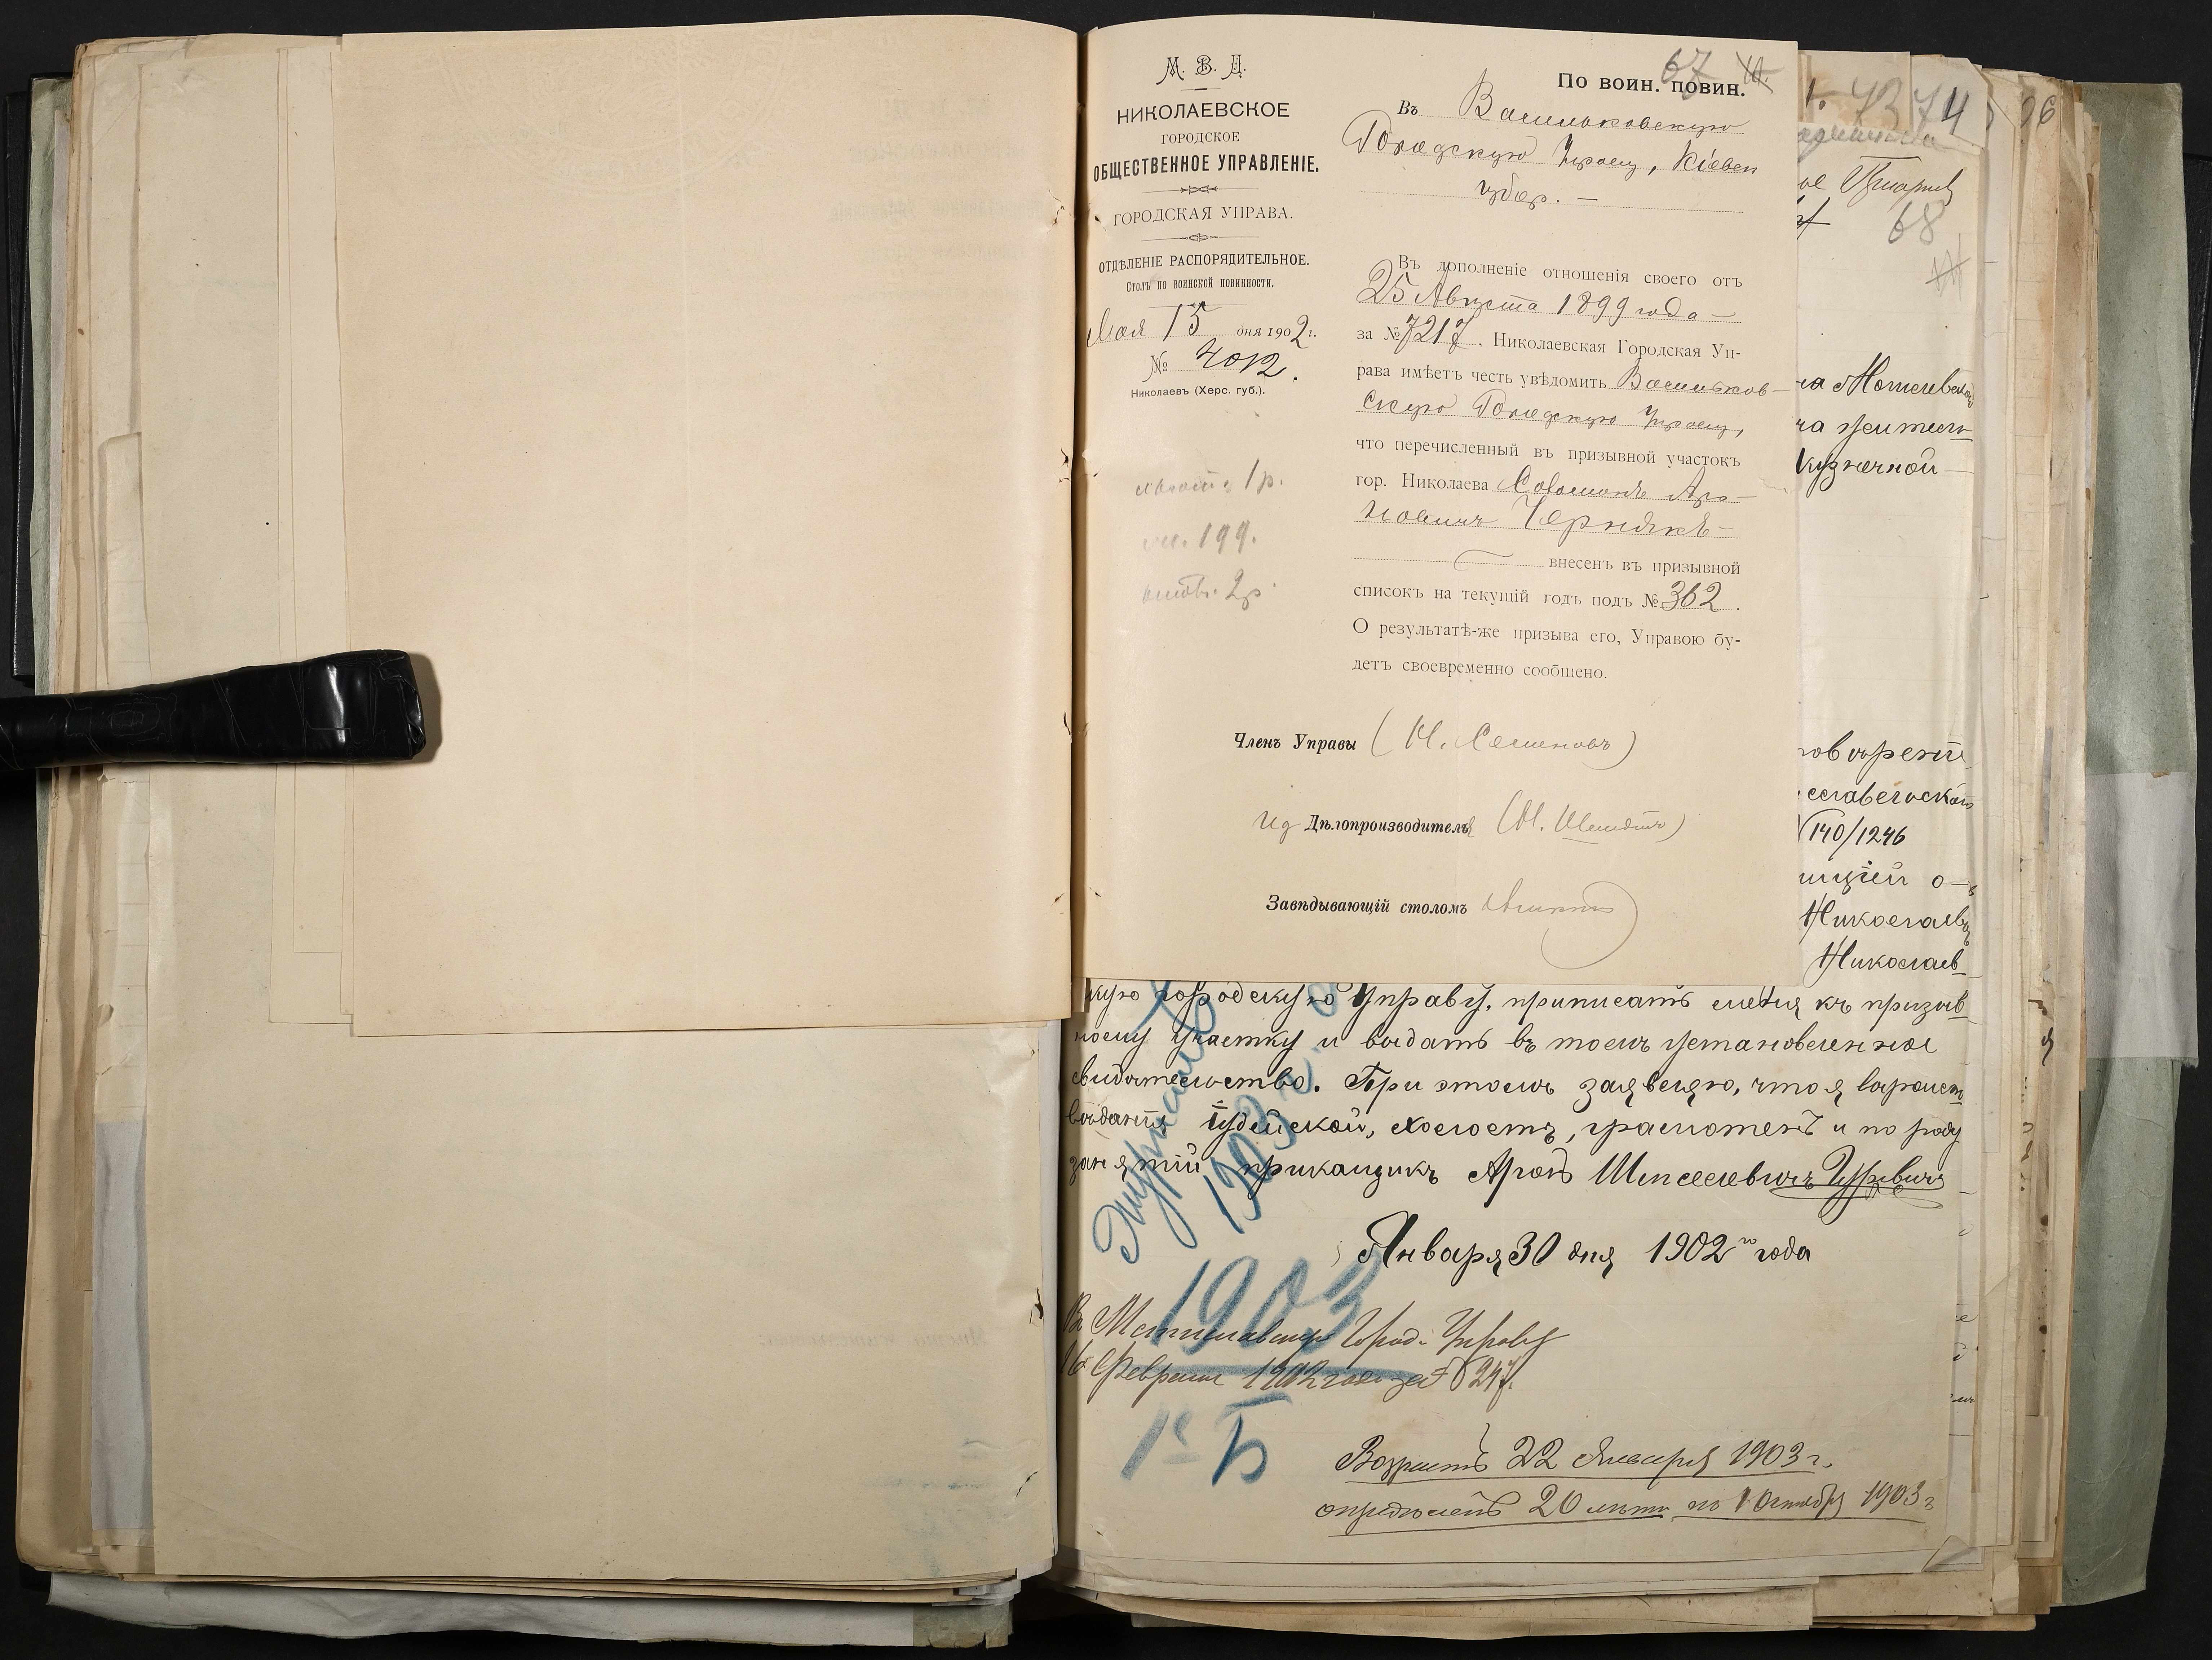 М. В. Д.
НИКОЛАЕВСКОЕ
ГОРОДСКОЕ
ОБЩЕСТВЕННОЕ УПРАВЛЕНІЕ.
ГОРОДСКАЯ УПРАВА.
ОТДѢЛЕНІЕ РАСПОРЯДИТЕЛЬНОЕ.
Столъ по воинской повинности.
Мая 15 дня 1902 г.
№ 4012.
Николаевъ (Херс. губ.).
1 р.
199.
2 р.
67
По воин. повин.
Въ Васильковскую
Городскую Управу, Кіевск
губер. —
Въ дополненіе отношенія своего отъ
25 Августа 1899 года —
за № 7217. Николаевская Городская Уп-
рава имѣетъ честь увѣдомить Васильков-
скую Городскую Управу,
что перечисленный въ призывной участокъ
гор. Николаева Соломонъ Аро-
новичъ Чернякъ —
внесенъ въ призывной
списокъ на текущій годъ подъ № 362.
О результатѣ-же призыва его, Управою бу-
детъ своевременно сообщено.
Членъ Управы (Н. Семеновъ)
Ид Дѣлопроизводителя
Завѣдывающій столомъ
73 74
96
68
на
Кузнечной —
140/1246
Николаевъ
Николаев-
скую городскую Управу, приписать меня къ призыв-
ному участку и выдать въ томъ установленное
свидѣтельство. При этомъ заявляю, что я вѣроиспо
вѣданія іудейской, холостъ, грамотенъ и по роду
занятій прикащикъ Аронъ Шмселевичъ Гуревичъ
Января 30 дня 1902 го года
Журналъ
1903 г.
1903
Въ Мстиславскую Город. Управу
16 Февраля 1902 года за № 247.
1е Б
Возрастъ 22 Января 1903 г.
опредѣленъ 20 лѣтъ къ 1 Октября 1903 г